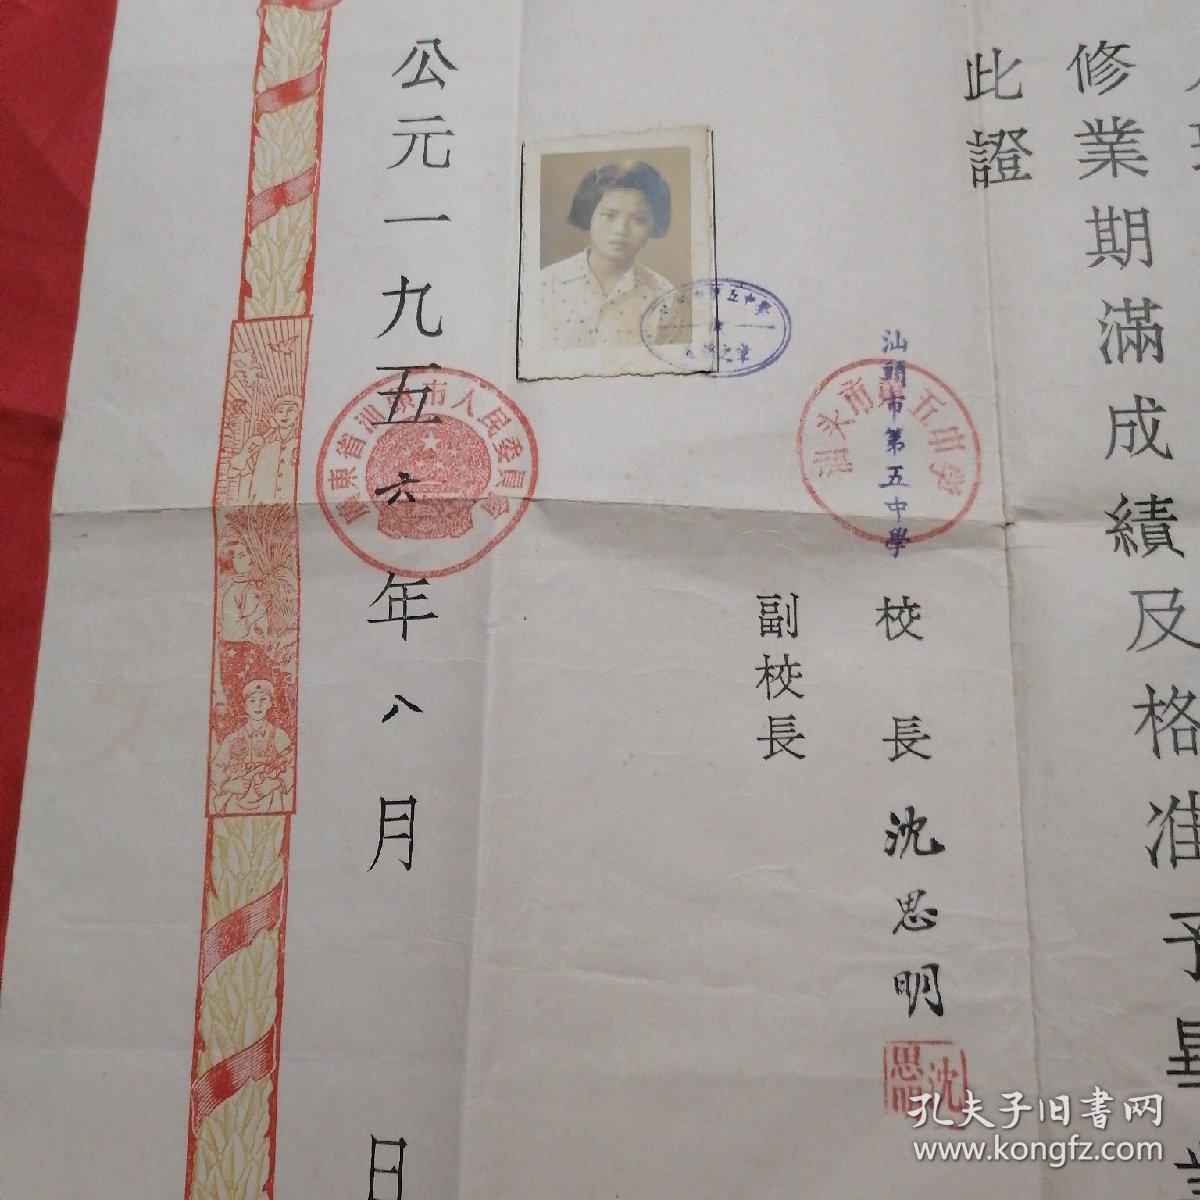 修業期滿成績及格准予畢
此證
汕頭市第五中學
校長沈思明
副校長
汕头市第五中学
廣東省汕頭市人民委員會
公元一九五六年八月 日
孔夫子旧書网
www.kongfz.com